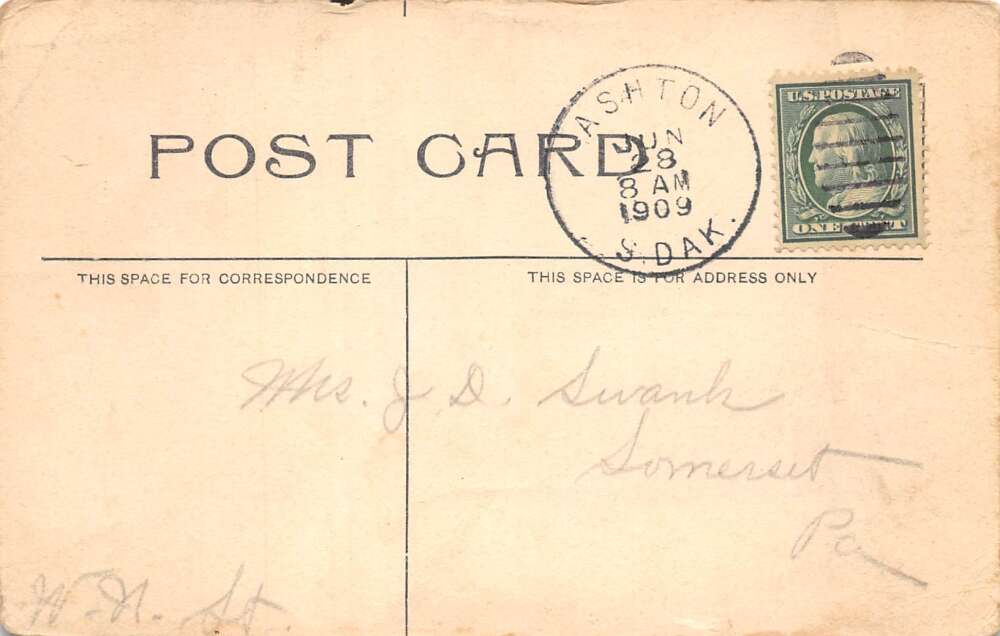 POST CARD
ASHTON
JUN
28
8 AM
1909
S. DAK.
U.S. POSTAGE
ONE CENT
THIS SPACE FOR CORRESPONDENCE
THIS SPACE IS FOR ADDRESS ONLY
Mrs. J. D. Swank
Somerset
Pa
W. N. St.